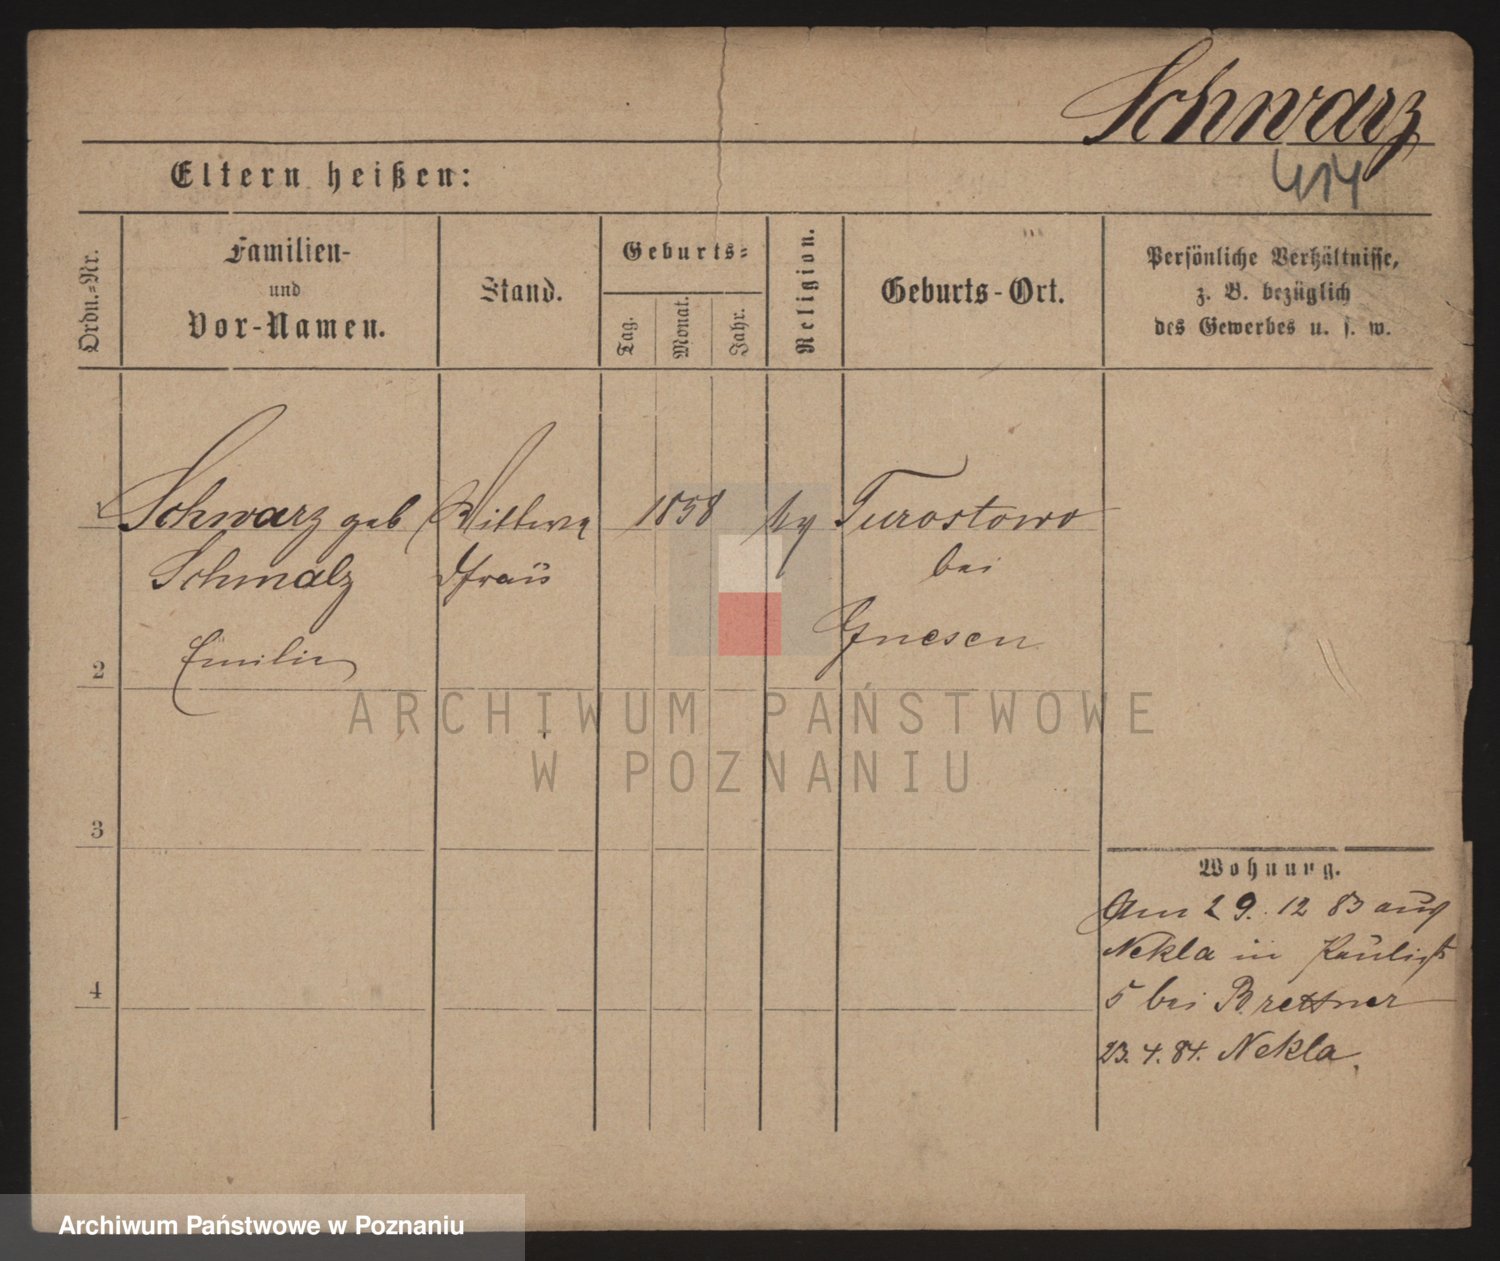 Schwarz
414
Eltern heißen:
Ordn.-Nr.
Familien-
und
Vor-Namen.
Stand.
Geburts-
Tag.
Monat.
Jahr.
Religion.
Geburts-Ort.
Persönliche Verhältnisse,
z. B. bezüglich
des Gewerbes u. s. w.
1
Schwarz geb
Schmalz
Emilie
Wittwe
1858
Turostowo
bei
Gnesen
2
3
4
Wohnung.
Am 29. 12 83 aus
Nekla in
5 bei Brettner
23. 4. 84. Nekla.
ARCHIWUM PAŃSTWOWE
W POZNANIU
Archiwum Państwowe w Poznaniu